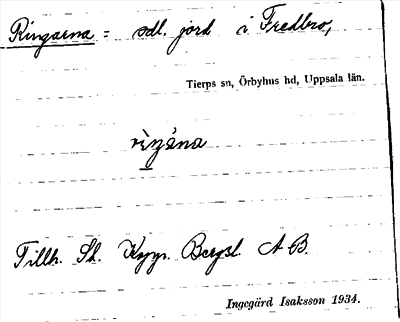 Ringarna = odl. jord i Fredbro,
Tierps sn, Örbyhus hd, Uppsala län.
Tillh. St. Kopp. Bergsl. A B.
Ingegärd Isaksson 1934.